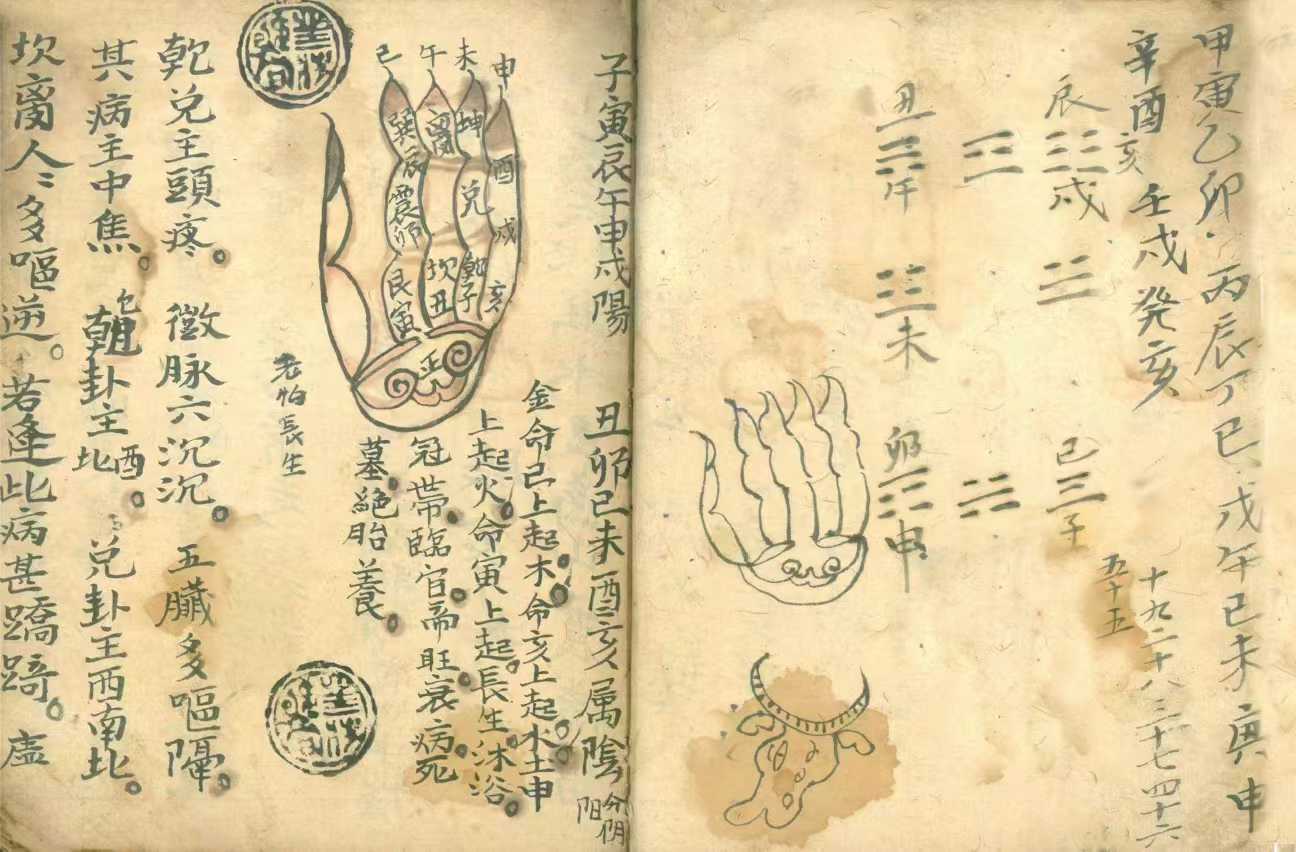 甲寅乙卯丙辰丁巳戊午己未庚申
辛酉壬戌癸亥
亥
十九二十八三十七四十六
五十五
辰
戌
巳
子
丑
午
未
卯
申
子寅辰午申戌陽 丑卯巳未酉亥属陰
分阴阳
金命巳上起木命亥上起水土申
上起火命寅上起長生沐浴
冠带臨官帝旺衰病死
墓絕胎養
巳
午
未
申
巽辰震卯艮寅
離
坎丑
坤
兌
乾子
酉
戌
亥
正
老怕長生
乾兌主頭疼 徵脉六沉沉 五臟多嘔隔
其病主中焦 卦主北酉 兌卦主西南北
坎离人人多嘔逆 若逢此病甚蹺踦 虛